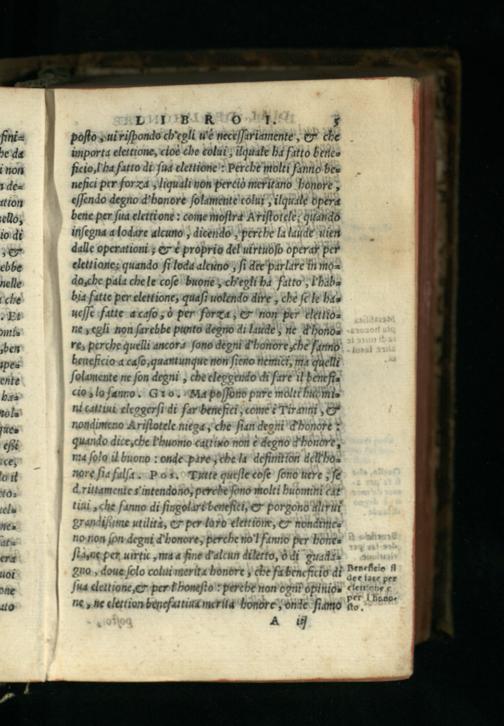 LIBRO I. 5
posto, ui rispondo ch'egli u'è necessariamente, & che
importa elettione, cioè che colui, ilquale ha fatto bene=
ficio, l'ha fatto di sua elettione: Perche molti fanno be=
nefici per forza, liquali non perciò meritano honore,
essendo degno d'honore solamente colui, ilquale opera
bene per sua elettione: come mostra Aristotele, quando
insegna a lodare alcuno, dicendo, perche la laude uien
dalle operationi; & è proprio del uirtuoso operar per
elettione; quando si loda alcuno, si dee parlare in mo=
do, che paia che le cose buone, ch'egli ha fatto, l'hab=
bia fatte per elettione, quasi uolendo dire, che se le ha=
uesse fatte a caso, ò per forza, & non per elettio=
ne, egli non sarebbe punto degno di laude, ne d'hono=
re, perche quelli ancora sono degni d'honore, che fanno
beneficio a caso, quantunque non sieno nemici, ma quelli
solamente ne son degni, che eleggendo di fare il benefi=
cio, lo fanno. GIO. Ma possono pure molti huomi=
ni cattiui eleggersi di far benefici, come i Tiranni, &
nondimeno Aristotele niega, che sian degni d'honore:
quando dice, che l'huomo cattiuo non è degno d'honore,
ma solo il buono: onde pare, che la definition dell'ho=
nore sia falsa. POS. Tutte queste cose sono uere, se
drittamente s'intendono, perche sono molti huomini cat
tiui, che fanno di singolari benefici, & porgono altrui
grandissime utilità, & per loro elettione, & nondime=
no non son degni d'honore, perche no'l fanno per hone=
stà, ne per uirtù, ma a fine d'alcun diletto, ò di guada=
gno, doue solo colui merita honore, che fa beneficio di
sua elettione, & per l'honesto: perche non ogni opinio=
ne, ne elettion benefattiua merita honore, onde siamo
A iij
Beneficio si
dee fare per
elettione e
per l'hone=
sto.